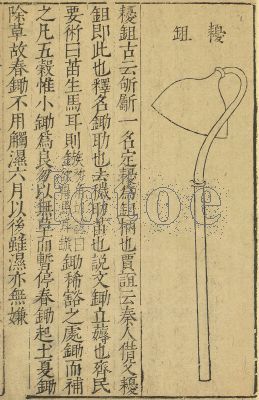 耰鉏
耰鉏古云斫斸一名定耰為鉏柄也賈誼云秦人借父耰
鉏即此也釋名鋤助也去穢助苗也説文鋤立薅也齊民
要術曰苗生馬耳則鏃鋤稀豁之處鋤而補
之凡五穀惟小鋤為良勿以無草而暫停春鋤起土夏鋤
除草故春鋤不用觸濕六月以後雖濕亦無嫌